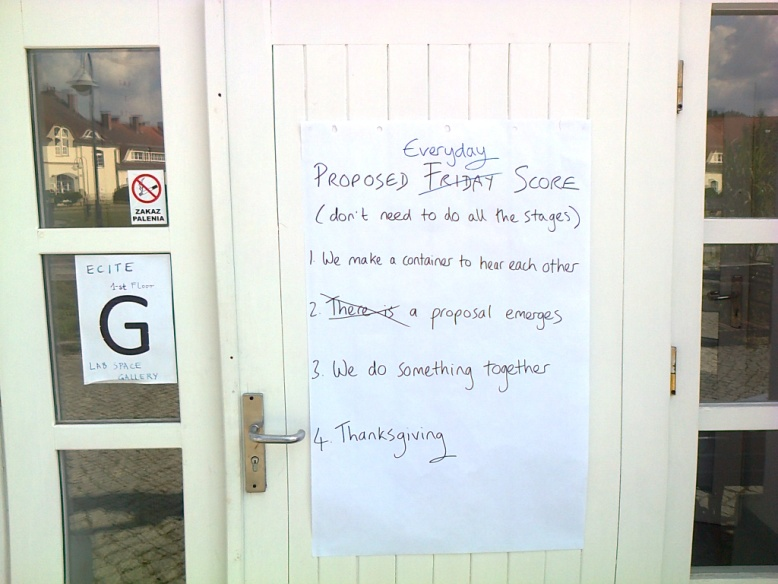 ZAKAZ
PALENIA
ECITE
1st Floor
G
LAB SPACE
GALLERY
Everyday
PROPOSED FRIDAY SCORE
(don't need to do all the stages)
1. We make a container to hear each other
2. There is a proposal emerges
3. We do something together
4. Thanksgiving